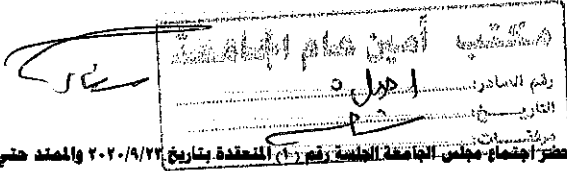 مكتب أمين عام الجامعة
رقم الصادر:
التاريخ:
مرفقات:
محضر اجتماع مجلس الجامعة الجلسة رقم (١) المنعقدة بتاريخ ٢٠٢٠/٩/٢٢ والممتد حتي